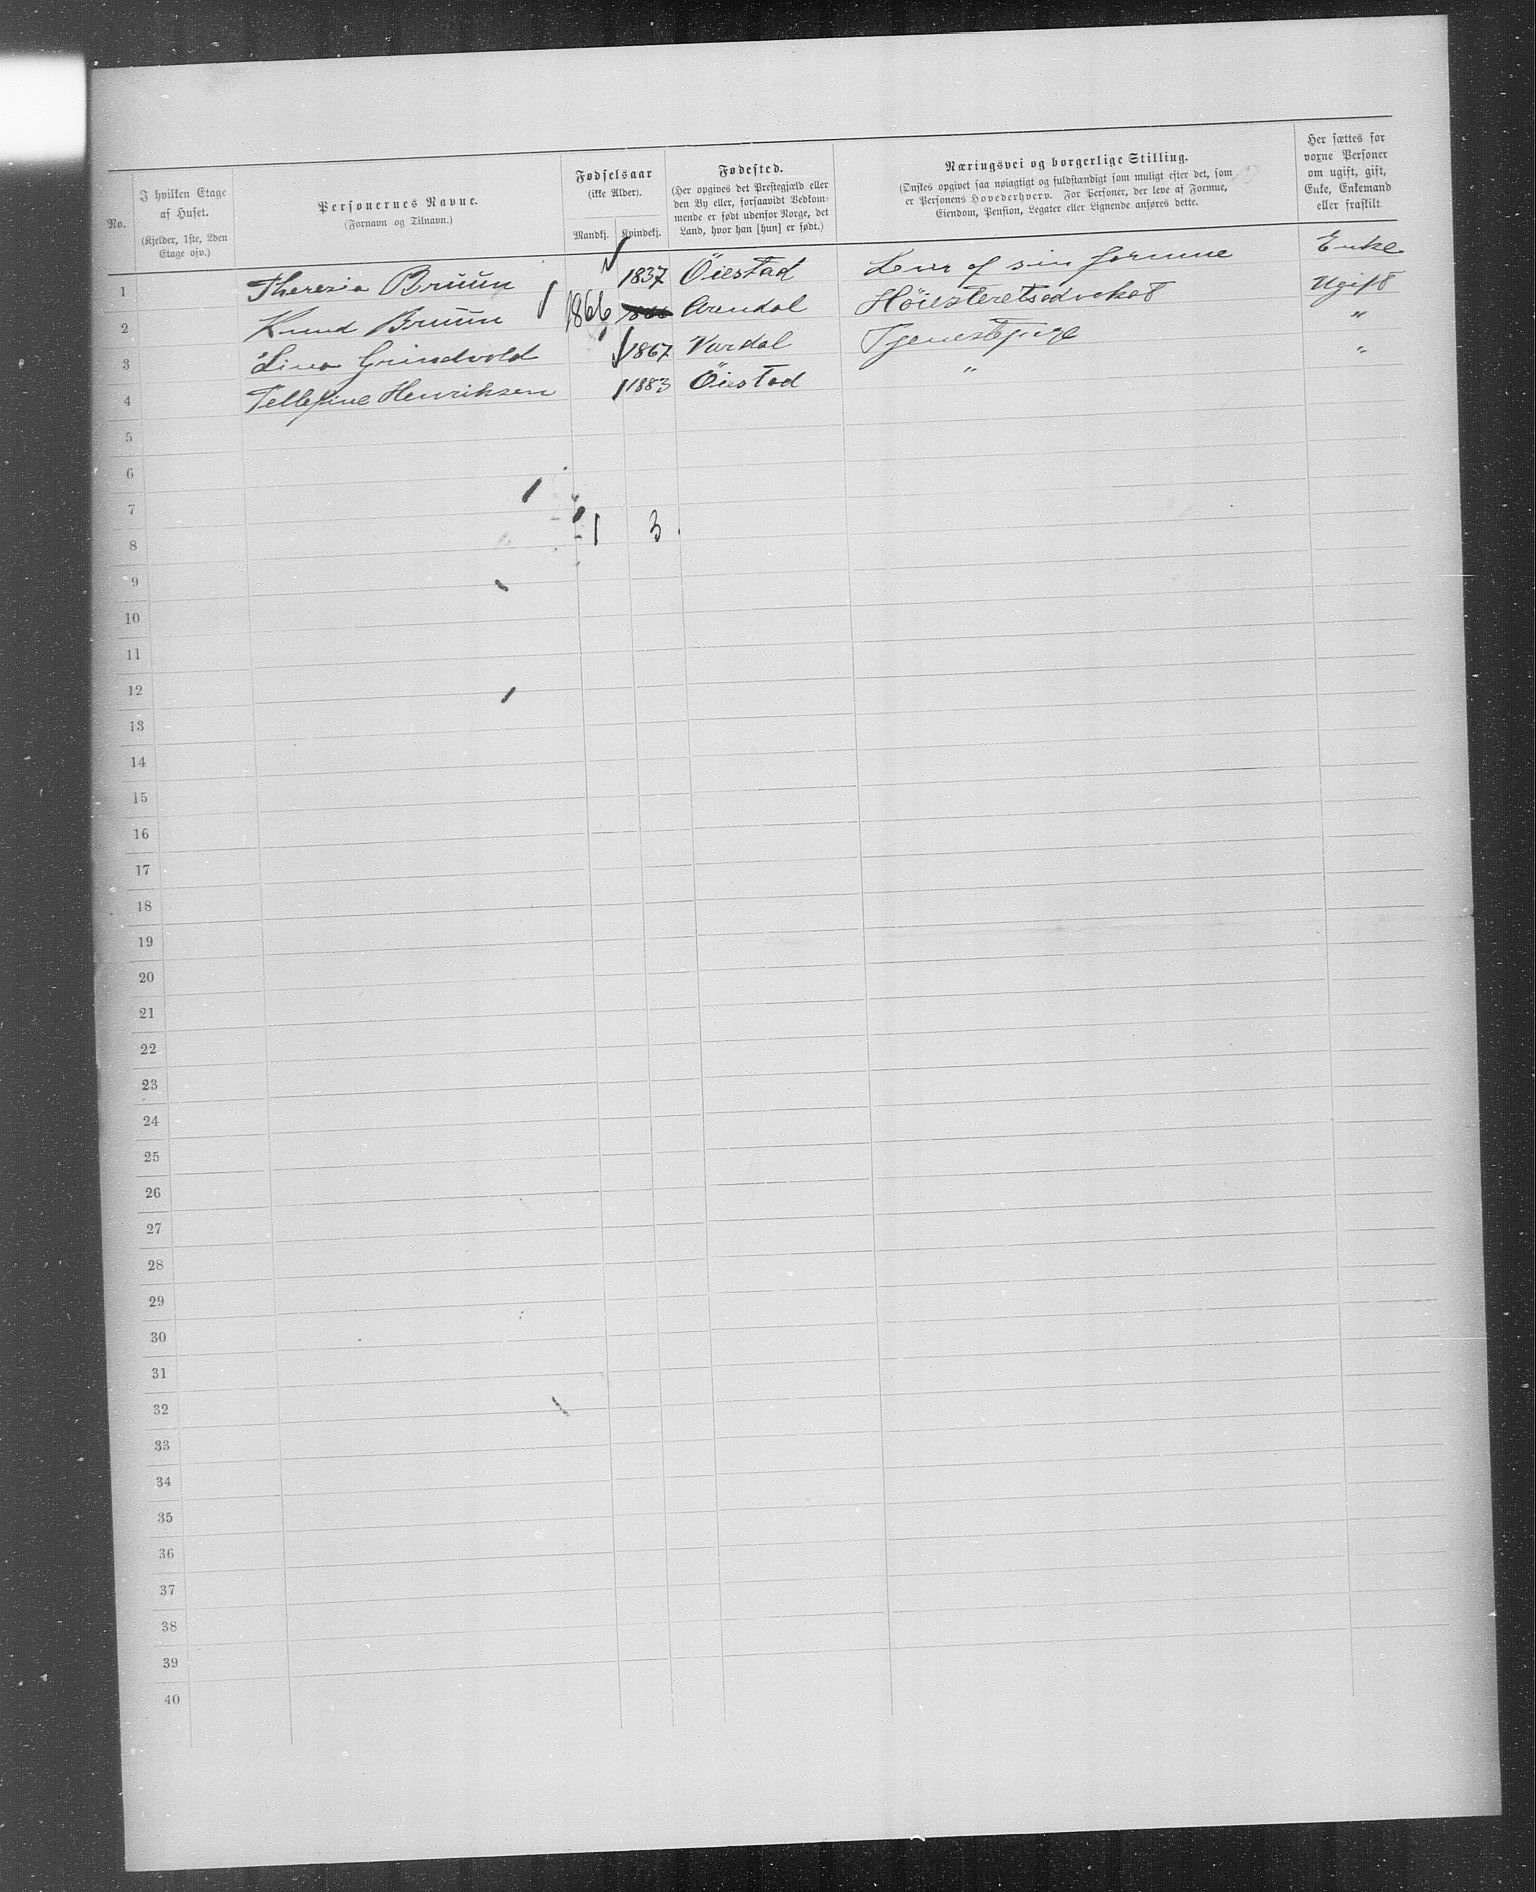 No.
I hvilken Etage af Huset.
(Kjelder, 1ste, 2den Etage osv.)
Personernes Navne.
(Fornavn og Tilnavn.)
Fødselsaar
(ikke Alder).
Mandkj. Kvindekj.
Fødested.
(Her opgives det Prestegjæld eller
den By eller, forsaavidt Vedkom-
mende er født udenfor Norge, det
Land, hvor han [hun] er født.)
Næringsvei og borgerlige Stilling.
(Ønskes opgivet saa nøiagtigt og fuldstændigt som muligt efter det, som
er Personens Hovederhverv. For Personer, der leve af Formue,
Eiendom, Pension, Legater eller Lignende anføres dette.
Her sættes for
voxne Personer
om ugift, gift,
Enke, Enkemand
eller fraskilt
1 Theresia Bruun 1837 Öiestad Lever af sin formue Enke
2 Knud Bruun 1866 Arendal Höiesteretsadvokat Ugift
3 Lina Grindvold 1867 Vardal Tjenestepige "
4 Tellefine Henriksen 1883 Öiestad " "
5
6
7
1 3.
8
9
10
11
12
13
14
15
16
17
18
19
20
21
22
23
24
25
26
27
28
29
30
31
32
33
34
35
36
37
38
39
40